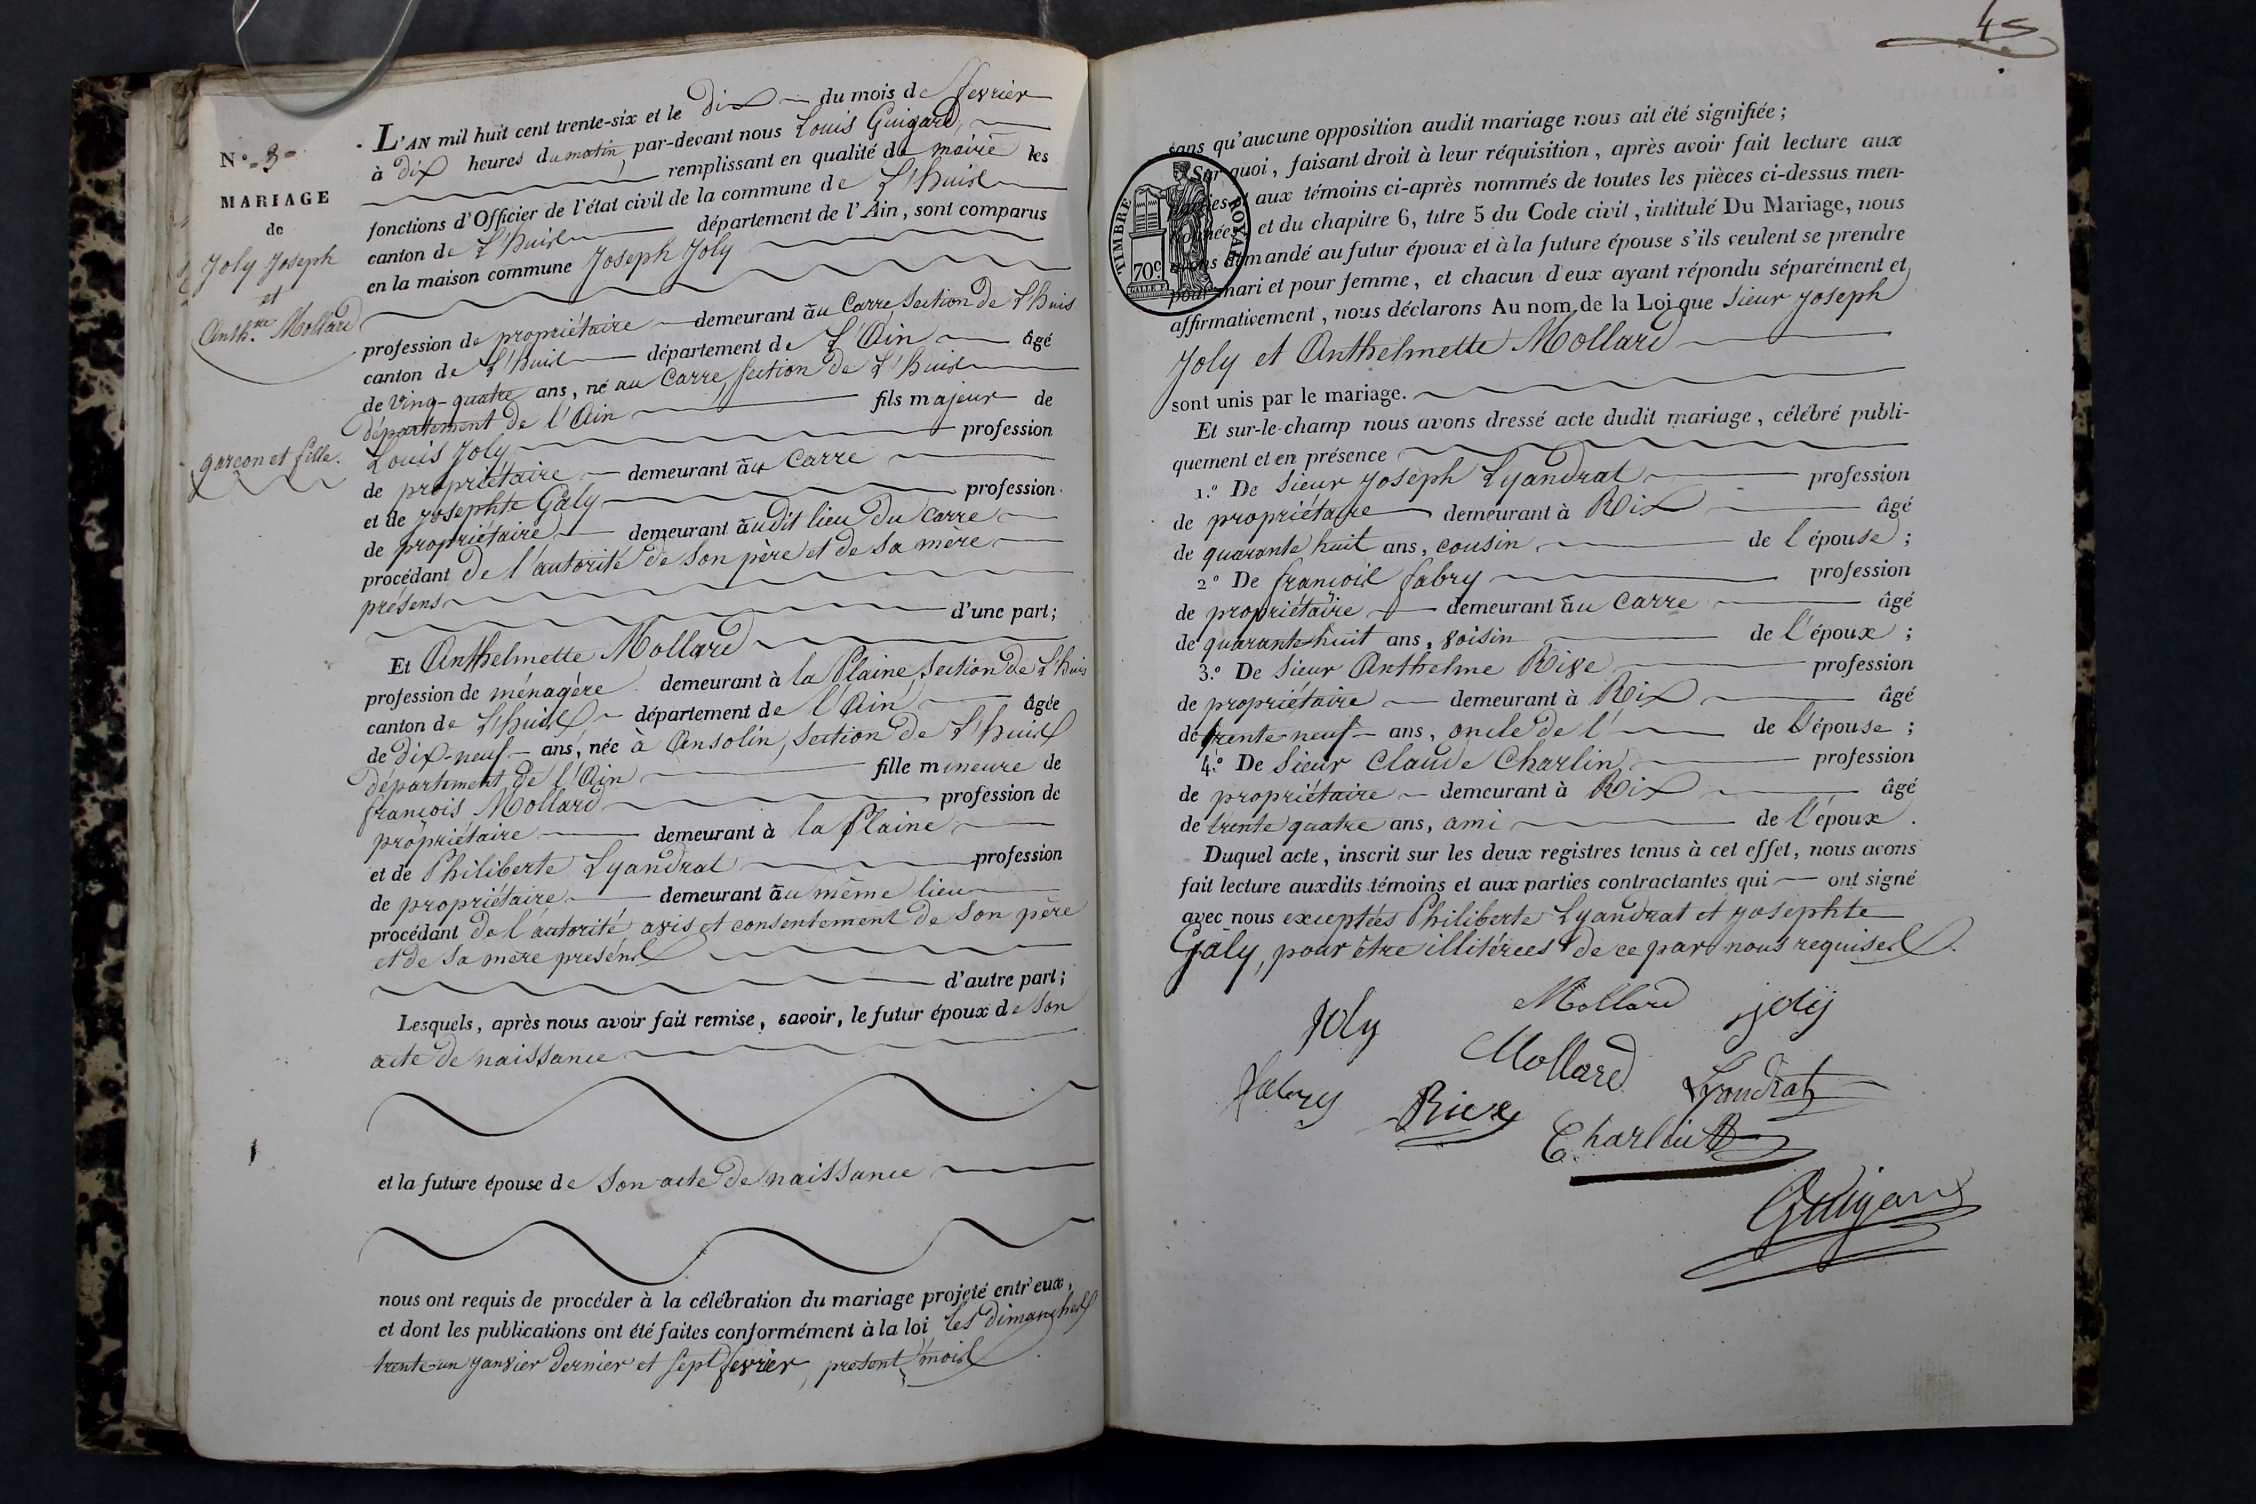 N.º 3
MARIAGE
de
Joly Joseph
et
Anth.tte Mollard
garçon et fille.
L'AN mil huit cent trente-six et le dix du mois de fevrier
à dix heures du matin par-devant nous Louis Guigard,
remplissant en qualité de maire les
fonctions d'Officier de l'état civil de la commune de L'huis
canton de L'huis département de l'Ain, sont comparus
en la maison commune Joseph Joly
profession de propriétaire demeurant au Carre section de L'huis
canton de L'huis département de L'Ain âgé
de ving-quatre ans, né au Carre, section de L'huis
département de l'Ain fils majeur de
Louis Joly profession
de propriétaire demeurant au Carre
et de Josephte Galy profession
de propriétaire demeurant audit lieu du Carre
procédant de l'autorité de son père et de sa mère
présens
d'une part;
Et Anthelmette Mollard
profession de ménagère demeurant à la Plaine, section de L'huis
canton de L'huis département de l'Ain âgée
de dix-neuf ans, née à Ansolin, section de L'huis
département de l'Ain fille mineure de
françois Mollard profession de
propriétaire demeurant à la Plaine
et de Philiberte Lyandrat profession
de propriétaire demeurant au même lieu
procédant de l'autorité avis et consentement de son père
et de sa mère présens
d'autre part;
Lesquels, après nous avoir fait remise, savoir, le futur époux de son
acte de naissance
et la future épouse de son acte de naissance
nous ont requis de procéder à la célébration du mariage projeté entr'eux,
et dont les publications ont été faites conformément à la loi les dimanches
trente-un janvier dernier et sept fevrier, present mois
45
sans qu'aucune opposition audit mariage nous ait été signifiée;
Sur quoi, faisant droit à leur réquisition, après avoir fait lecture aux
aux témoins ci-après nommés de toutes les pièces ci-dessus men-
et du chapitre 6, titre 5 du Code civil, intitulé Du Mariage, nous
avons demandé au futur époux et à la future épouse s'ils veulent se prendre
pour mari et pour femme, et chacun d'eux ayant répondu séparément et
affirmativement, nous déclarons Au nom de la Loi que sieur Joseph
Joly et Anthelmette Mollard
sont unis par le mariage.
Et sur-le-champ nous avons dressé acte dudit mariage, célébré publi-
quement et en présence
1.º De sieur Joseph Lyandrat profession
de propriétaire demeurant à Rix âgé
de quarante huit ans, cousin de l'épouse;
2.º De françois fabry profession
de propriétaire demeurant au Carre âgé
de quarante huit ans, voisin de l'époux;
3.º De sieur Anthelme Rive profession
de propriétaire demeurant à Rix âgé
de trente-neuf ans, oncle de l' de l'épouse;
4.º De sieur Claude Charlin profession
de propriétaire demeurant à Rix âgé
de trente quatre ans, ami de l'époux.
Duquel acte, inscrit sur les deux registres tenus à cet effet, nous avons
fait lecture auxdits témoins et aux parties contractantes qui ont signé
avec nous exceptées Philiberte Lyandrat et Josephte
Galy, pour être illitérées de ce par nous requises.
TIMBRE ROYAL
70c
Joly Mollard joly
fabry Mollard Lyandrat
Rive Charlin
Guigard